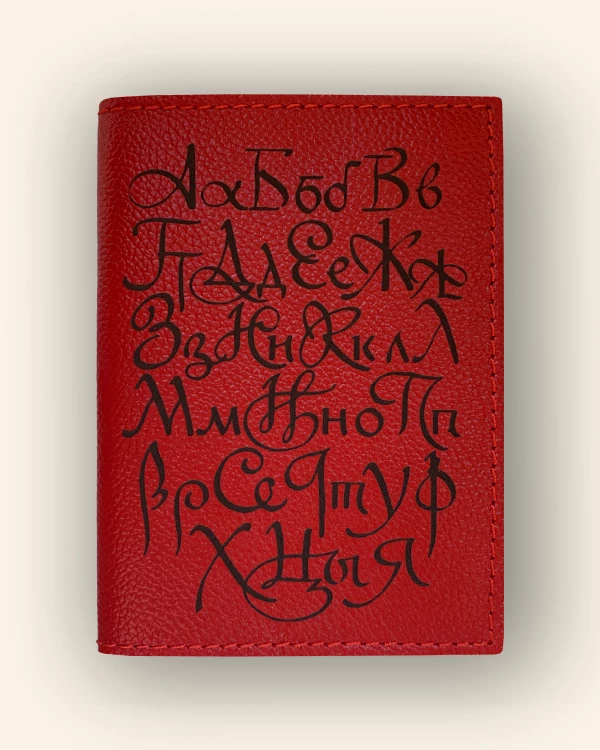 АаБбб Вв
ГгДдЕеЖж
ЗзИиКклЛ
МмНноПп
РрСеТтУФ
ХЦыЯ